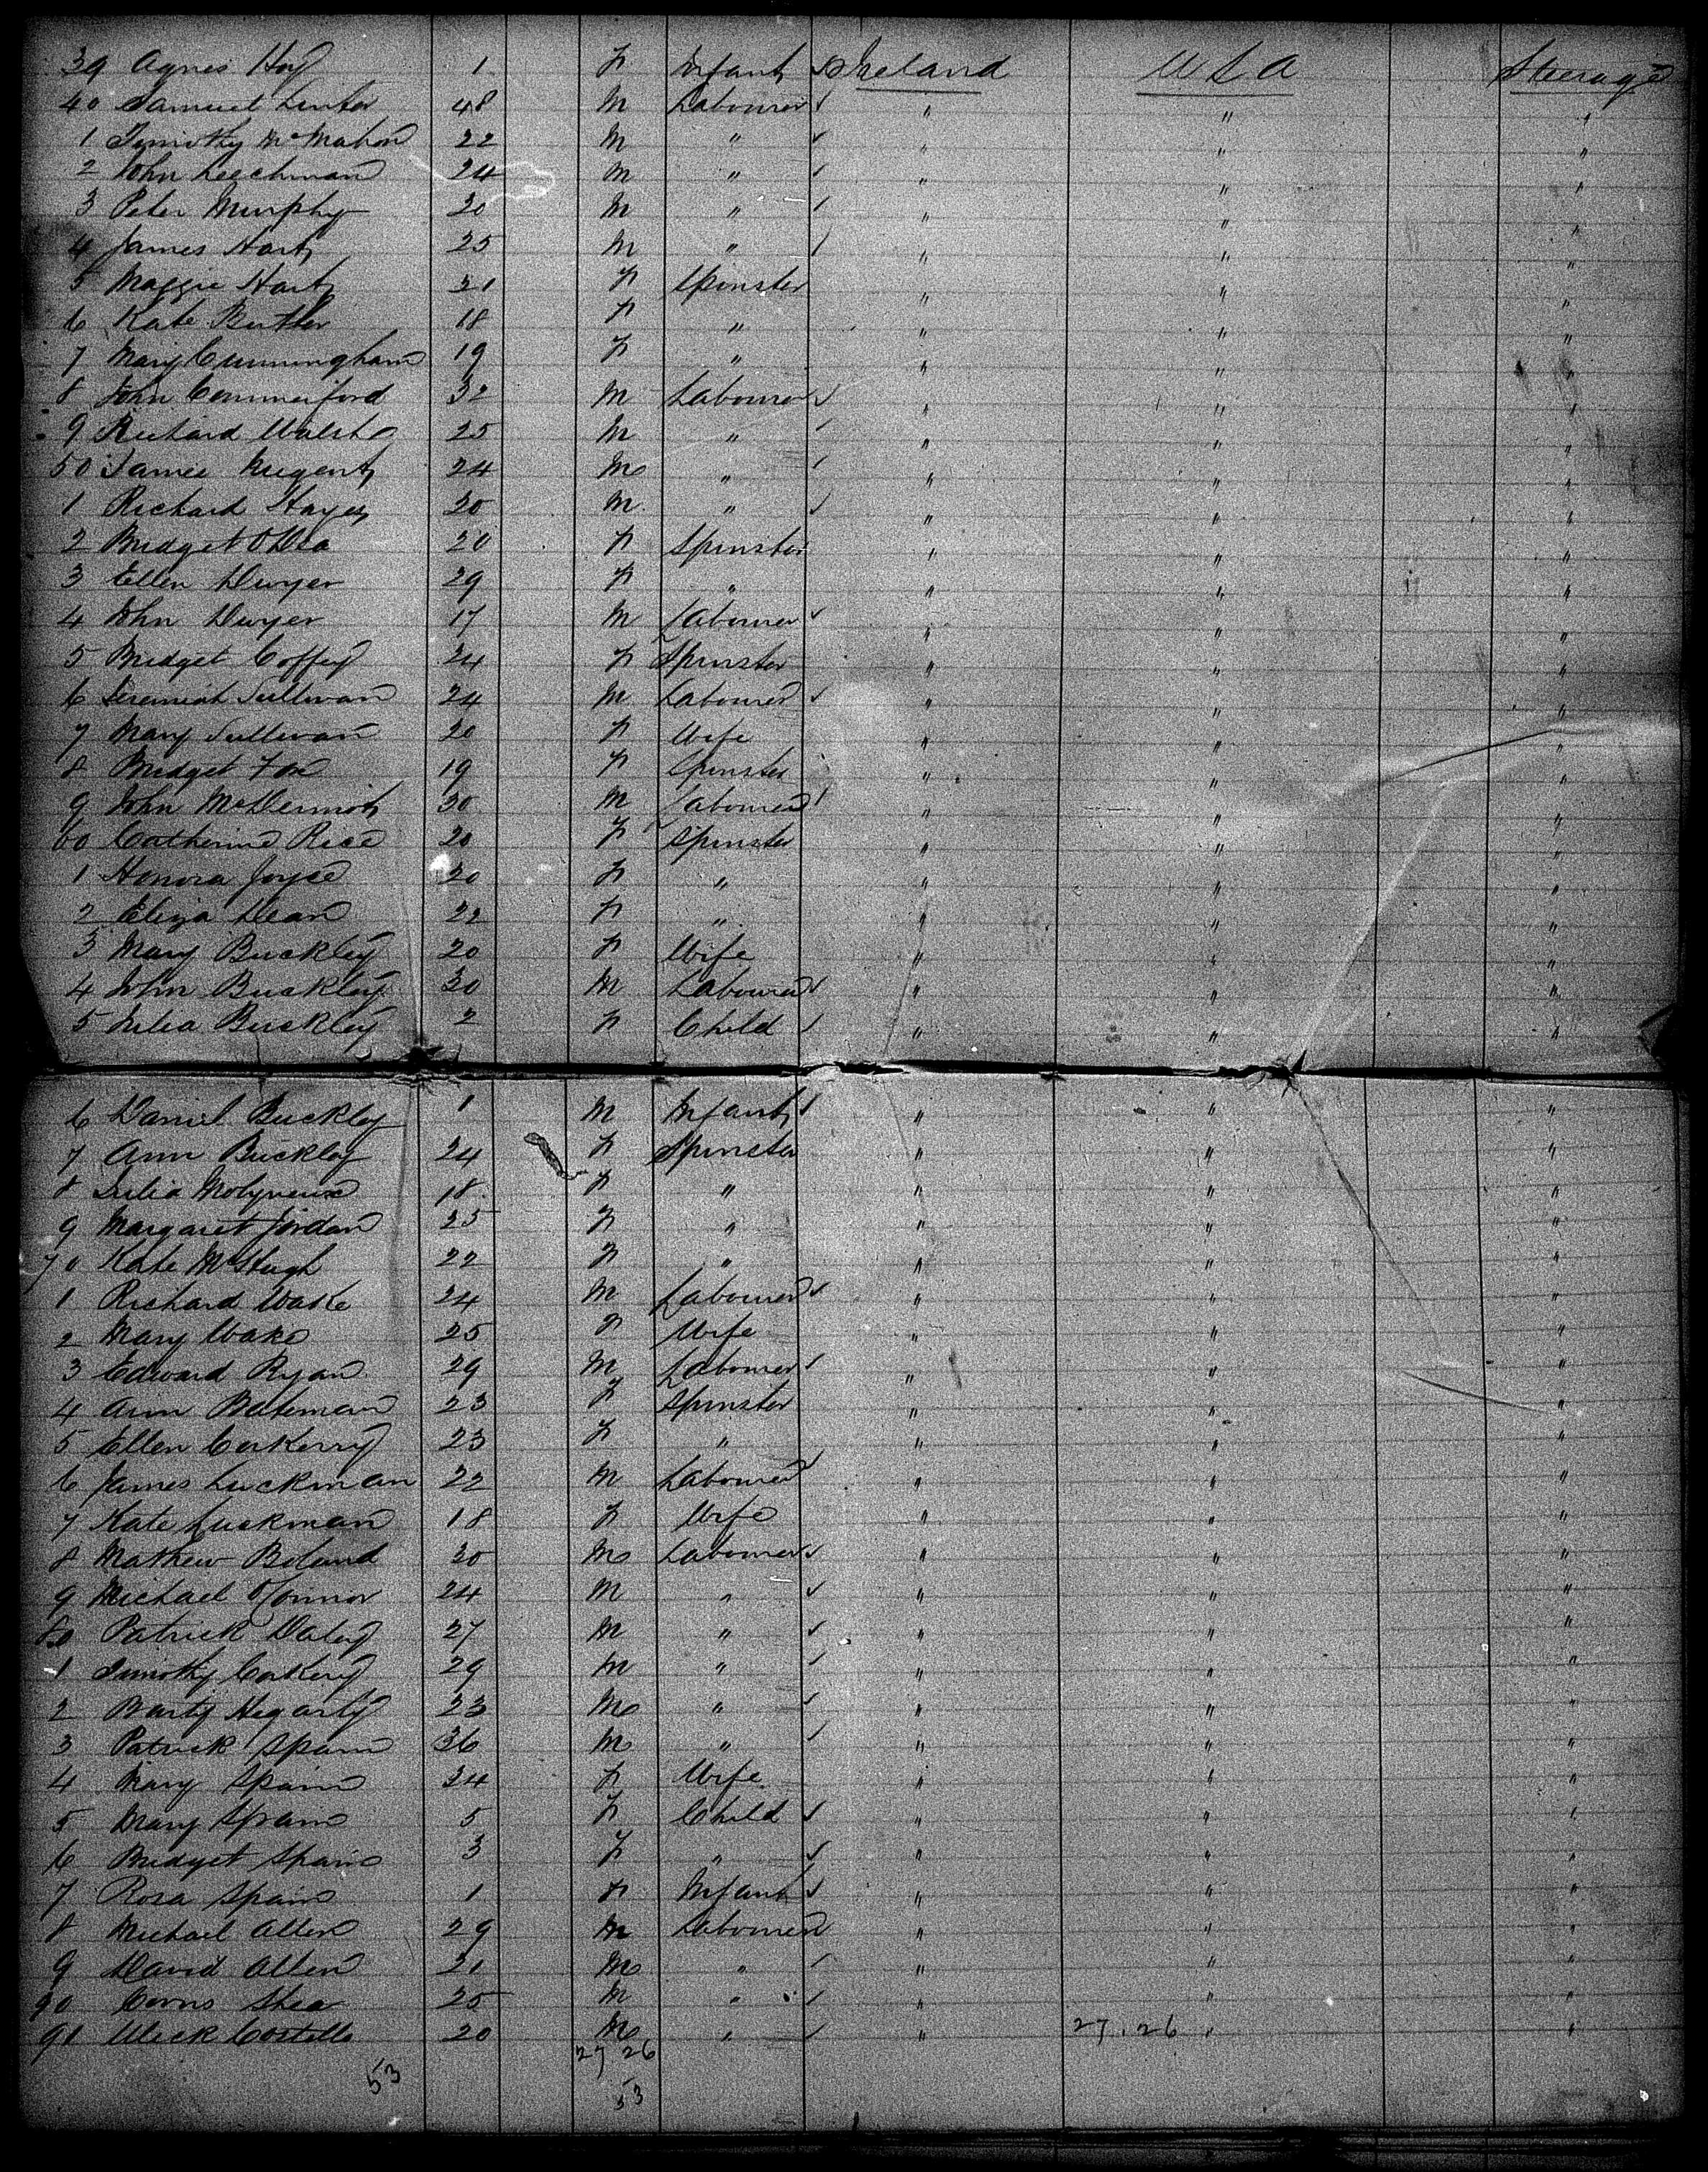 39 Agnes Hoy 1 F Infant Ireland USA Steerage
40 Samuel 48 M Labourer " " "
1 Timothy McMahon 22 M " " " "
2 John Leechman 24 M " " " "
3 Peter Murphy 30 M " " " "
4 James Hart 25 M " " " "
5 Maggie Hart 21 F Spinster " " "
6 Kate Butler 18 F " " " "
7 Mary Cunningham 19 F " " " "
8 John Commerford 32 M Labourer " " "
9 Richard Walsh 25 M " " " "
50 James Nugent 24 M " " " "
1 Richard Hayes 20 M " " " "
2 Bridget O'Dea 20 F Spinster " " "
3 Ellen Dwyer 29 F " " " "
4 John Dwyer 17 M Labourer " " "
5 Bridget Coffey 24 F Spinster " " "
6 Jeremiah Sullivan 24 M Labourer " " "
7 Mary Sullivan 20 F Wife " " "
8 Bridget Fox 19 F Spinster " " "
9 John McDermott 30 M Labourer " " "
60 Catherine Rice 20 F Spinster " " "
1 Honora Joyce 20 F " " " "
2 Eliza Dean 22 F " " " "
3 Mary Buckley 20 F Wife " " "
4 John Buckley 30 M Labourer " " "
5 Julia Buckley 2 F Child " " "
6 Daniel Buckley 1 M Infant " " "
7 Ann Buckley 24 F Spinster " " "
8 Julia Molyneux 18 F " " " "
9 Margaret Jordan 25 F " " " "
70 Kate McHugh 22 F " " " "
1 Richard Wake 24 M Labourer " " "
2 Mary Wake 25 F Wife " " "
3 Edward Ryan 29 M Labourer " " "
4 Ann Bateman 23 F Spinster " " "
5 Ellen Corkerry 23 F " " " "
6 James Luckman 22 M Labourer " " "
7 Kate Luckman 18 F Wife " " "
8 Mathew Boland 30 M Labourer " " "
9 Michael O'Connor 24 M " " " "
80 Patrick Daley 27 M " " " "
1 Timothy Corkery 29 M " " " "
2 Barty Hegarty 23 M " " " "
3 Patrick Spain 36 M " " " "
4 Mary Spain 34 F Wife " " "
5 Mary Spain 5 F Child " " "
6 Bridget Spain 3 F " " " "
7 Rosa Spain 1 F Infant " " "
8 Michael Allen 29 M Labourer " " "
9 David Allen 31 M " " " "
90 Shea 25 M " " " "
91 Ulick Costello 20 M " " 27.26 " "
27 26
53 53